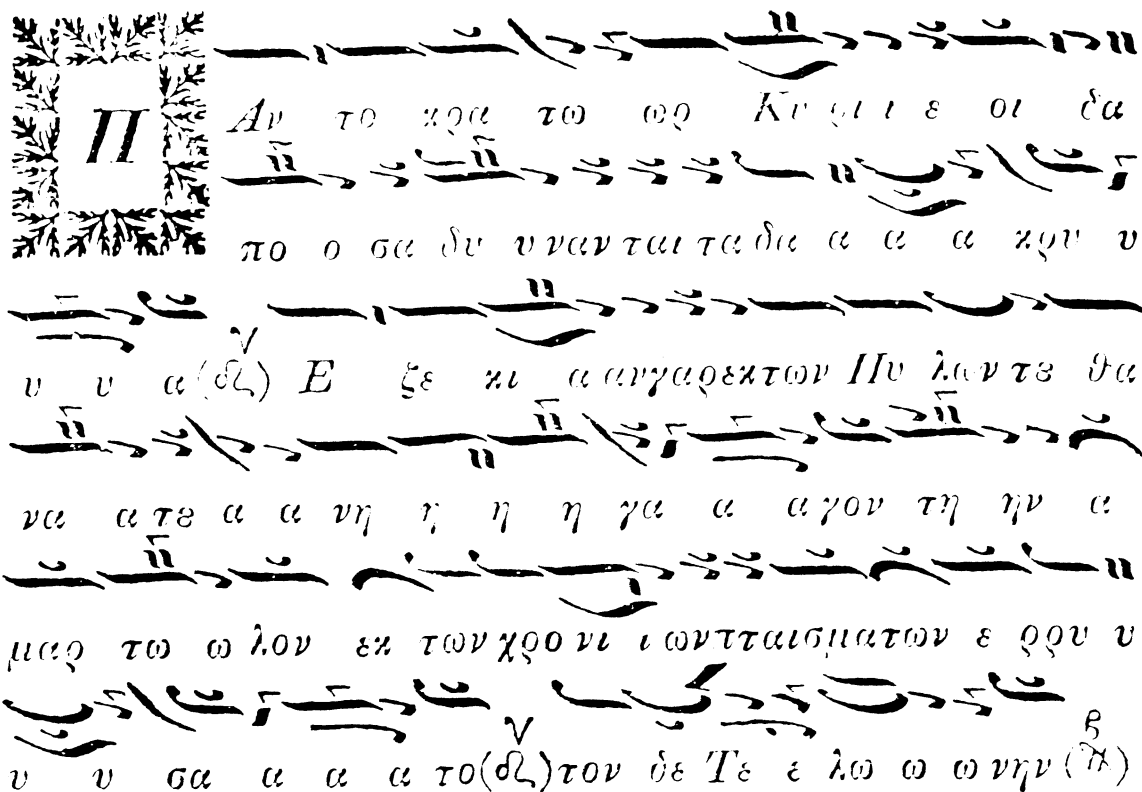 Π Αν το κρα τω ωρ Κυ ρι ι ε οι δα
πο ο σα δυ υ ναν ται τα δα α α α κρυ υ
υ υ α (δι) Ε ζε κι α αν γαρ εκ των Πυ λων τȣ θα
να α τȣ α α νη η η η γα α α γον τη ην α
μαρ τω ω λον εκ των χρο νι ι ων πταισ μα των ε ρρυ υ
υ υ σα α α α το (δι) τον δε Τε ε λω ω ω νην